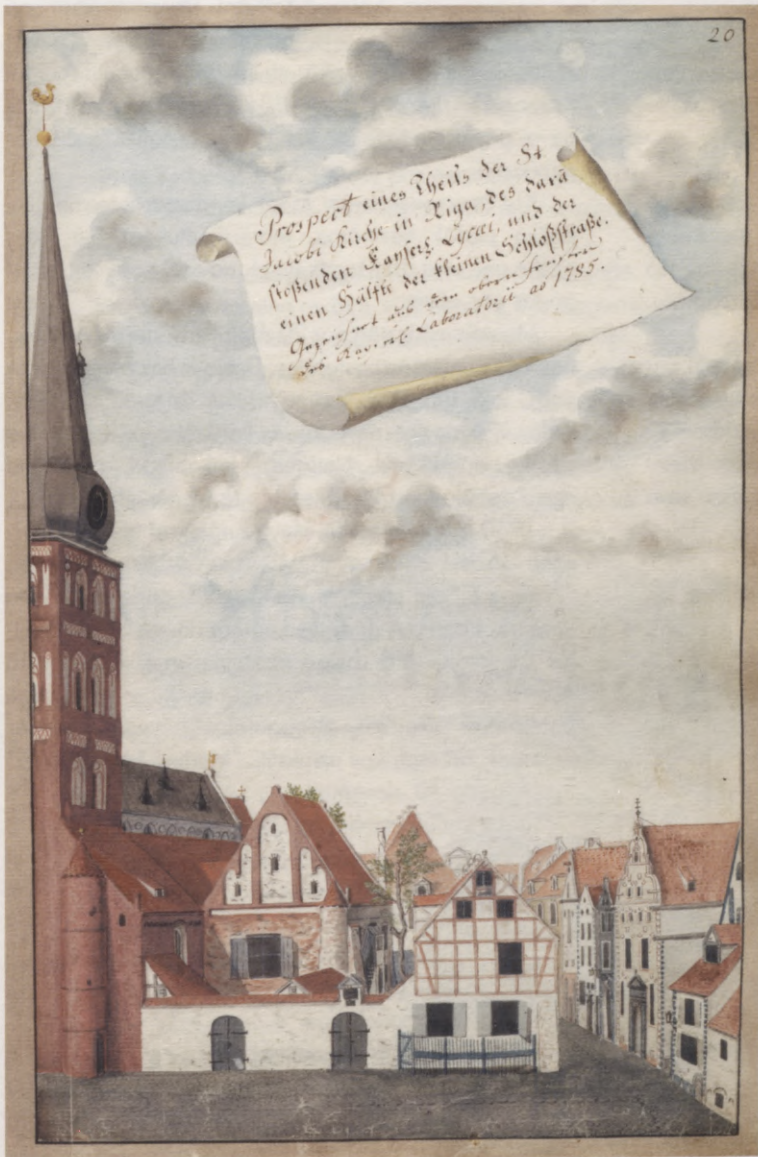 20
Prospect eines Theils der St.
Jacobi Kirche in Riga, des darā
stoßenden Kayserl. Lycaei, und der
einen Hälfte der kleinen Schloßstraße.
Gezeichnet aus dem obern Fenster
des Kayserl. Laboratorii ao 1785.